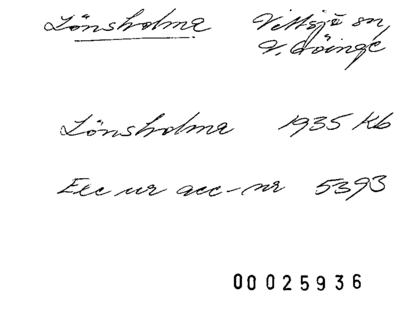 Lönsholma Vittsjö sn,
V. Göinge
Lönsholma 1935 Kb
Exc ur acc-nr 5393
00025936